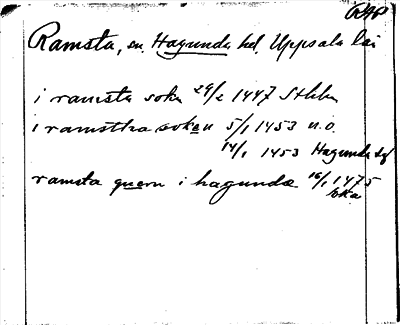 Ramsta, sn. Hagunda hd. Uppsala län
i ramsta sokn 29/2 1447 Sthlm
i ramstha sokan 5/1 1453 u.o.
14/1 1453 Hagunda
ramsta quern i hagunda 16/1 1475
Eka